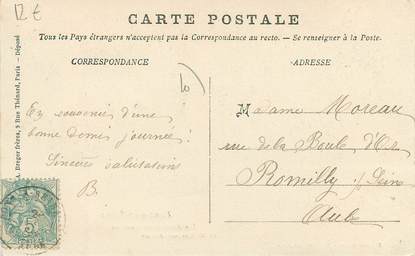 12€
CARTE POSTALE
Tous les Pays étrangers n'acceptent pas la Correspondance au recto. — Se renseigner à la Poste.
CORRESPONDANCE
ADRESSE
En souvenir d'une
bonne demi journée!
Sincères salutations
B.
Madame Moreau
rue de la Boule d'Or
Romilly s/ Seine
Aube
A. Breger frères, 9 Rue Thénard, Paris — Déposé